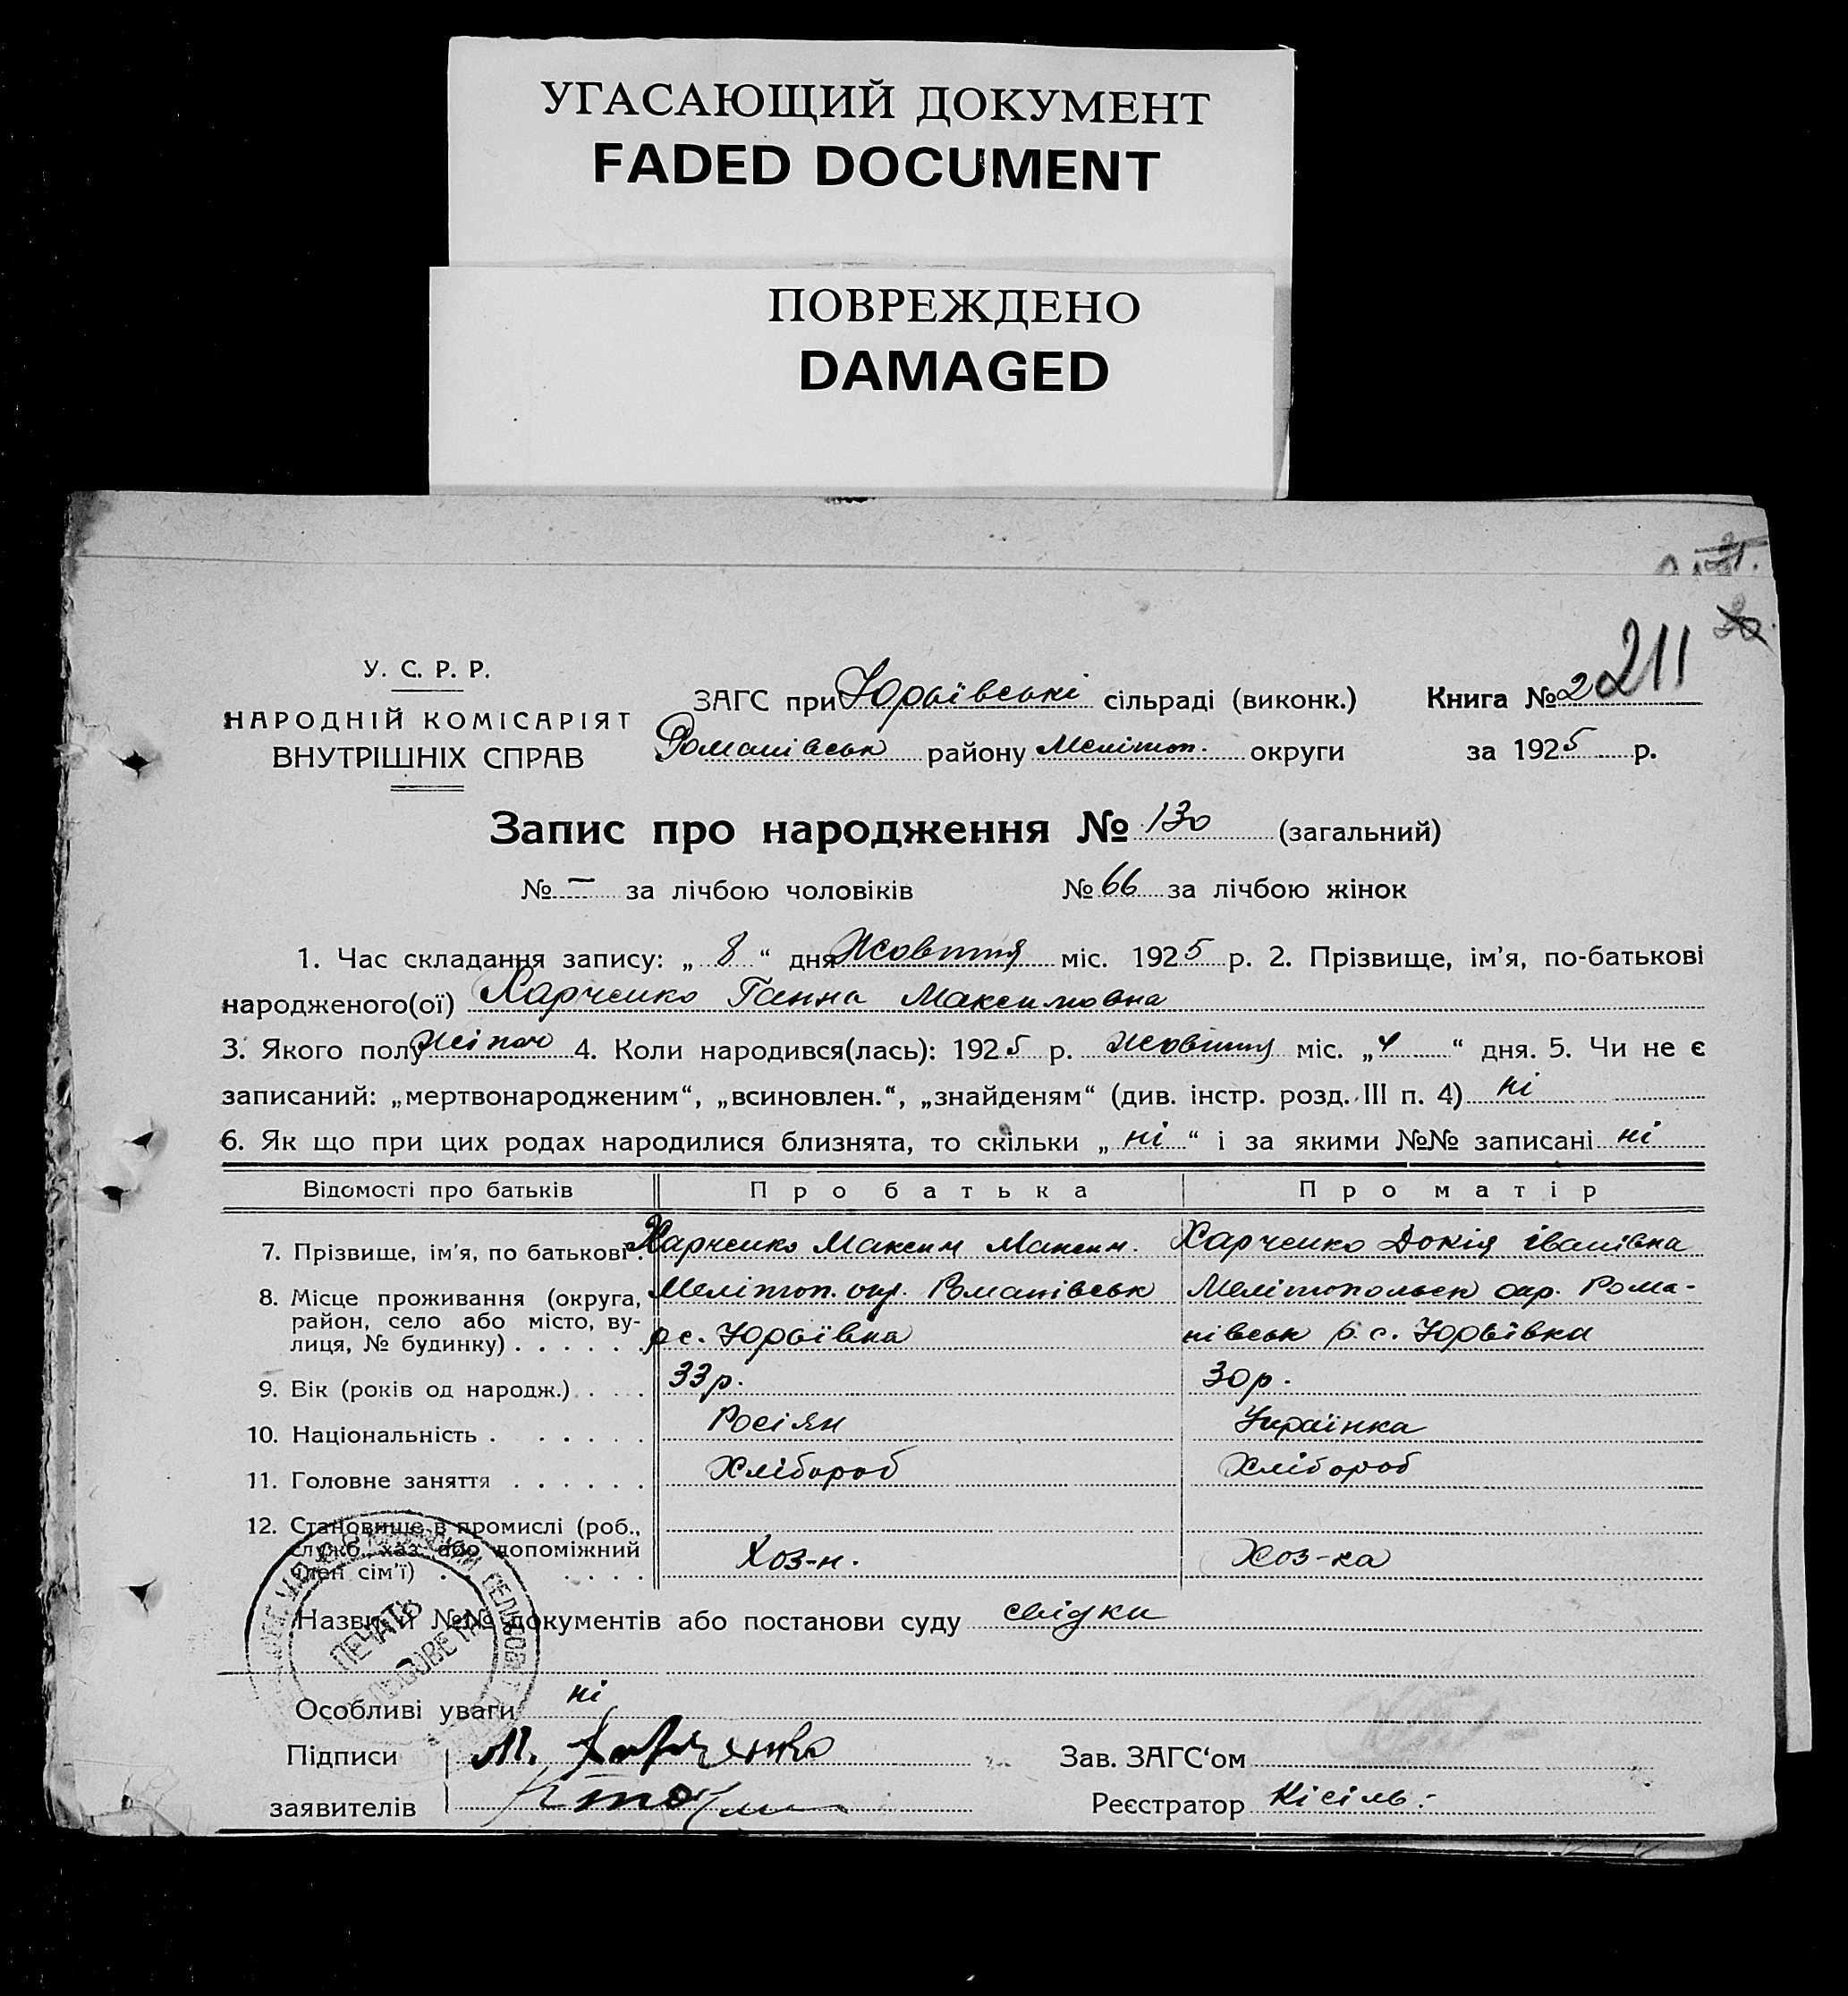 УГАСАЮЩИЙ ДОКУМЕНТ
FADED DOCUMENT
ПОВРЕЖДЕНО
DAMAGED
211
У. С. Р. Р.
НАРОДНІЙ КОМІСАРІЯТ
ВНУТРІШНІХ СПРАВ
ЗАГС при Юрьївські сільраді (виконк.) Книга № 2
Романівськ району Мелітоп. округи за 1925 р.
Запис про народження № 130 (загальний)
№ — за лічбою чоловіків № 66 за лічбою жінок
1. Час складання запису: „ 8 “ дня Жовтня міс. 1925 р. 2. Прізвище, ім’я, по-батькові
народженого(ої) Харченко Ганна Максимовна
3. Якого полу 4. Коли народився(лась): 1925 р. жовтня міс. „ 4 “ дня. 5. Чи не є
записаний: „мертвонародженим“, „всиновлен.“, „знайденям“ (див. інстр. розд. III п. 4) ні
6. Як що при цих родах народилися близнята, то скільки „ ні “ і за якими №№ записані ні
Відомості про батьків Про батька Про матір
7. Прізвище, ім’я, по батькові . Харченко Максим Максим. Харченко Докія Іванівна
8. Місце проживання (округа, Мелітоп. окр. Романівськ Мелітопольск окр. Рома-
район, село або місто, ву- р с. Юрьївка нівськ р. с. Юрьївка
лиця, № будинку) . . . . . .
9. Вік (років од народж.) . . . 33 р. 30 р.
10. Національність . . . . . . Росіян Українка
11. Головне заняття . . . . . . Хлібороб Хлібороб
12. Становище в промислі (роб.,
служб., хаз. або допоміжний Хоз-н. Хоз-ка
член сім’ї) . . . . . .
Назви й №№ документів або постанови суду свідки
ПЕЧАТЬ
СЕЛЬСОВЕТА
Особливі уваги ні
Підписи М. Харченко Зав. ЗАГС‘ом
заявителів Реєстратор Кісіль